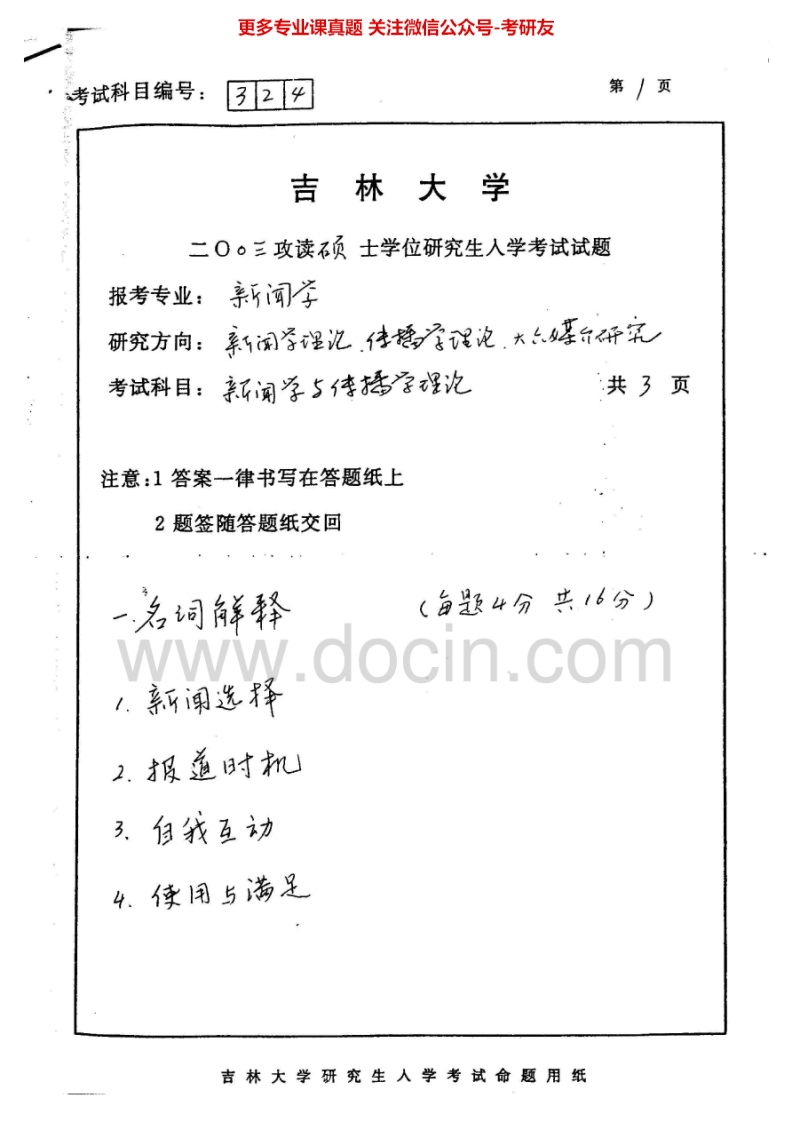 更多专业课真题 关注微信公众号-考研友
考试科目编号： 324
第 1 页
吉 林 大 学
二〇〇三攻读硕 士学位研究生入学考试试题
报考专业： 新闻学
研究方向： 新闻学理论、传播学理论、大众媒介研究
考试科目： 新闻学与传播学理论 共 3 页
注意：1 答案一律书写在答题纸上
2 题签随答题纸交回
一. 名词解释 （每题4分 共16分）
www.docin.com
1. 新闻选择
2. 报道时机
3. 自我互动
4. 使用与满足
吉林大学研究生入学考试命题用纸